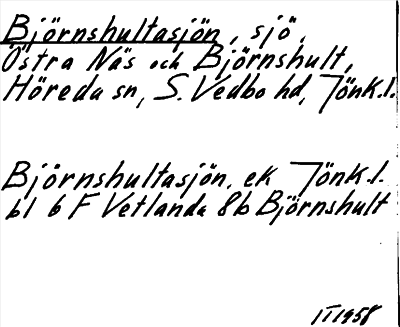 Björnshultasjön, sjö,
Östra Näs och Björnshult,
Höreda sn, S. Vedbo hd, Jönk.l.
Björnshultasjön. ek Jönk.l.
bl 6 F Vetlanda 8b Björnshult
II 1958